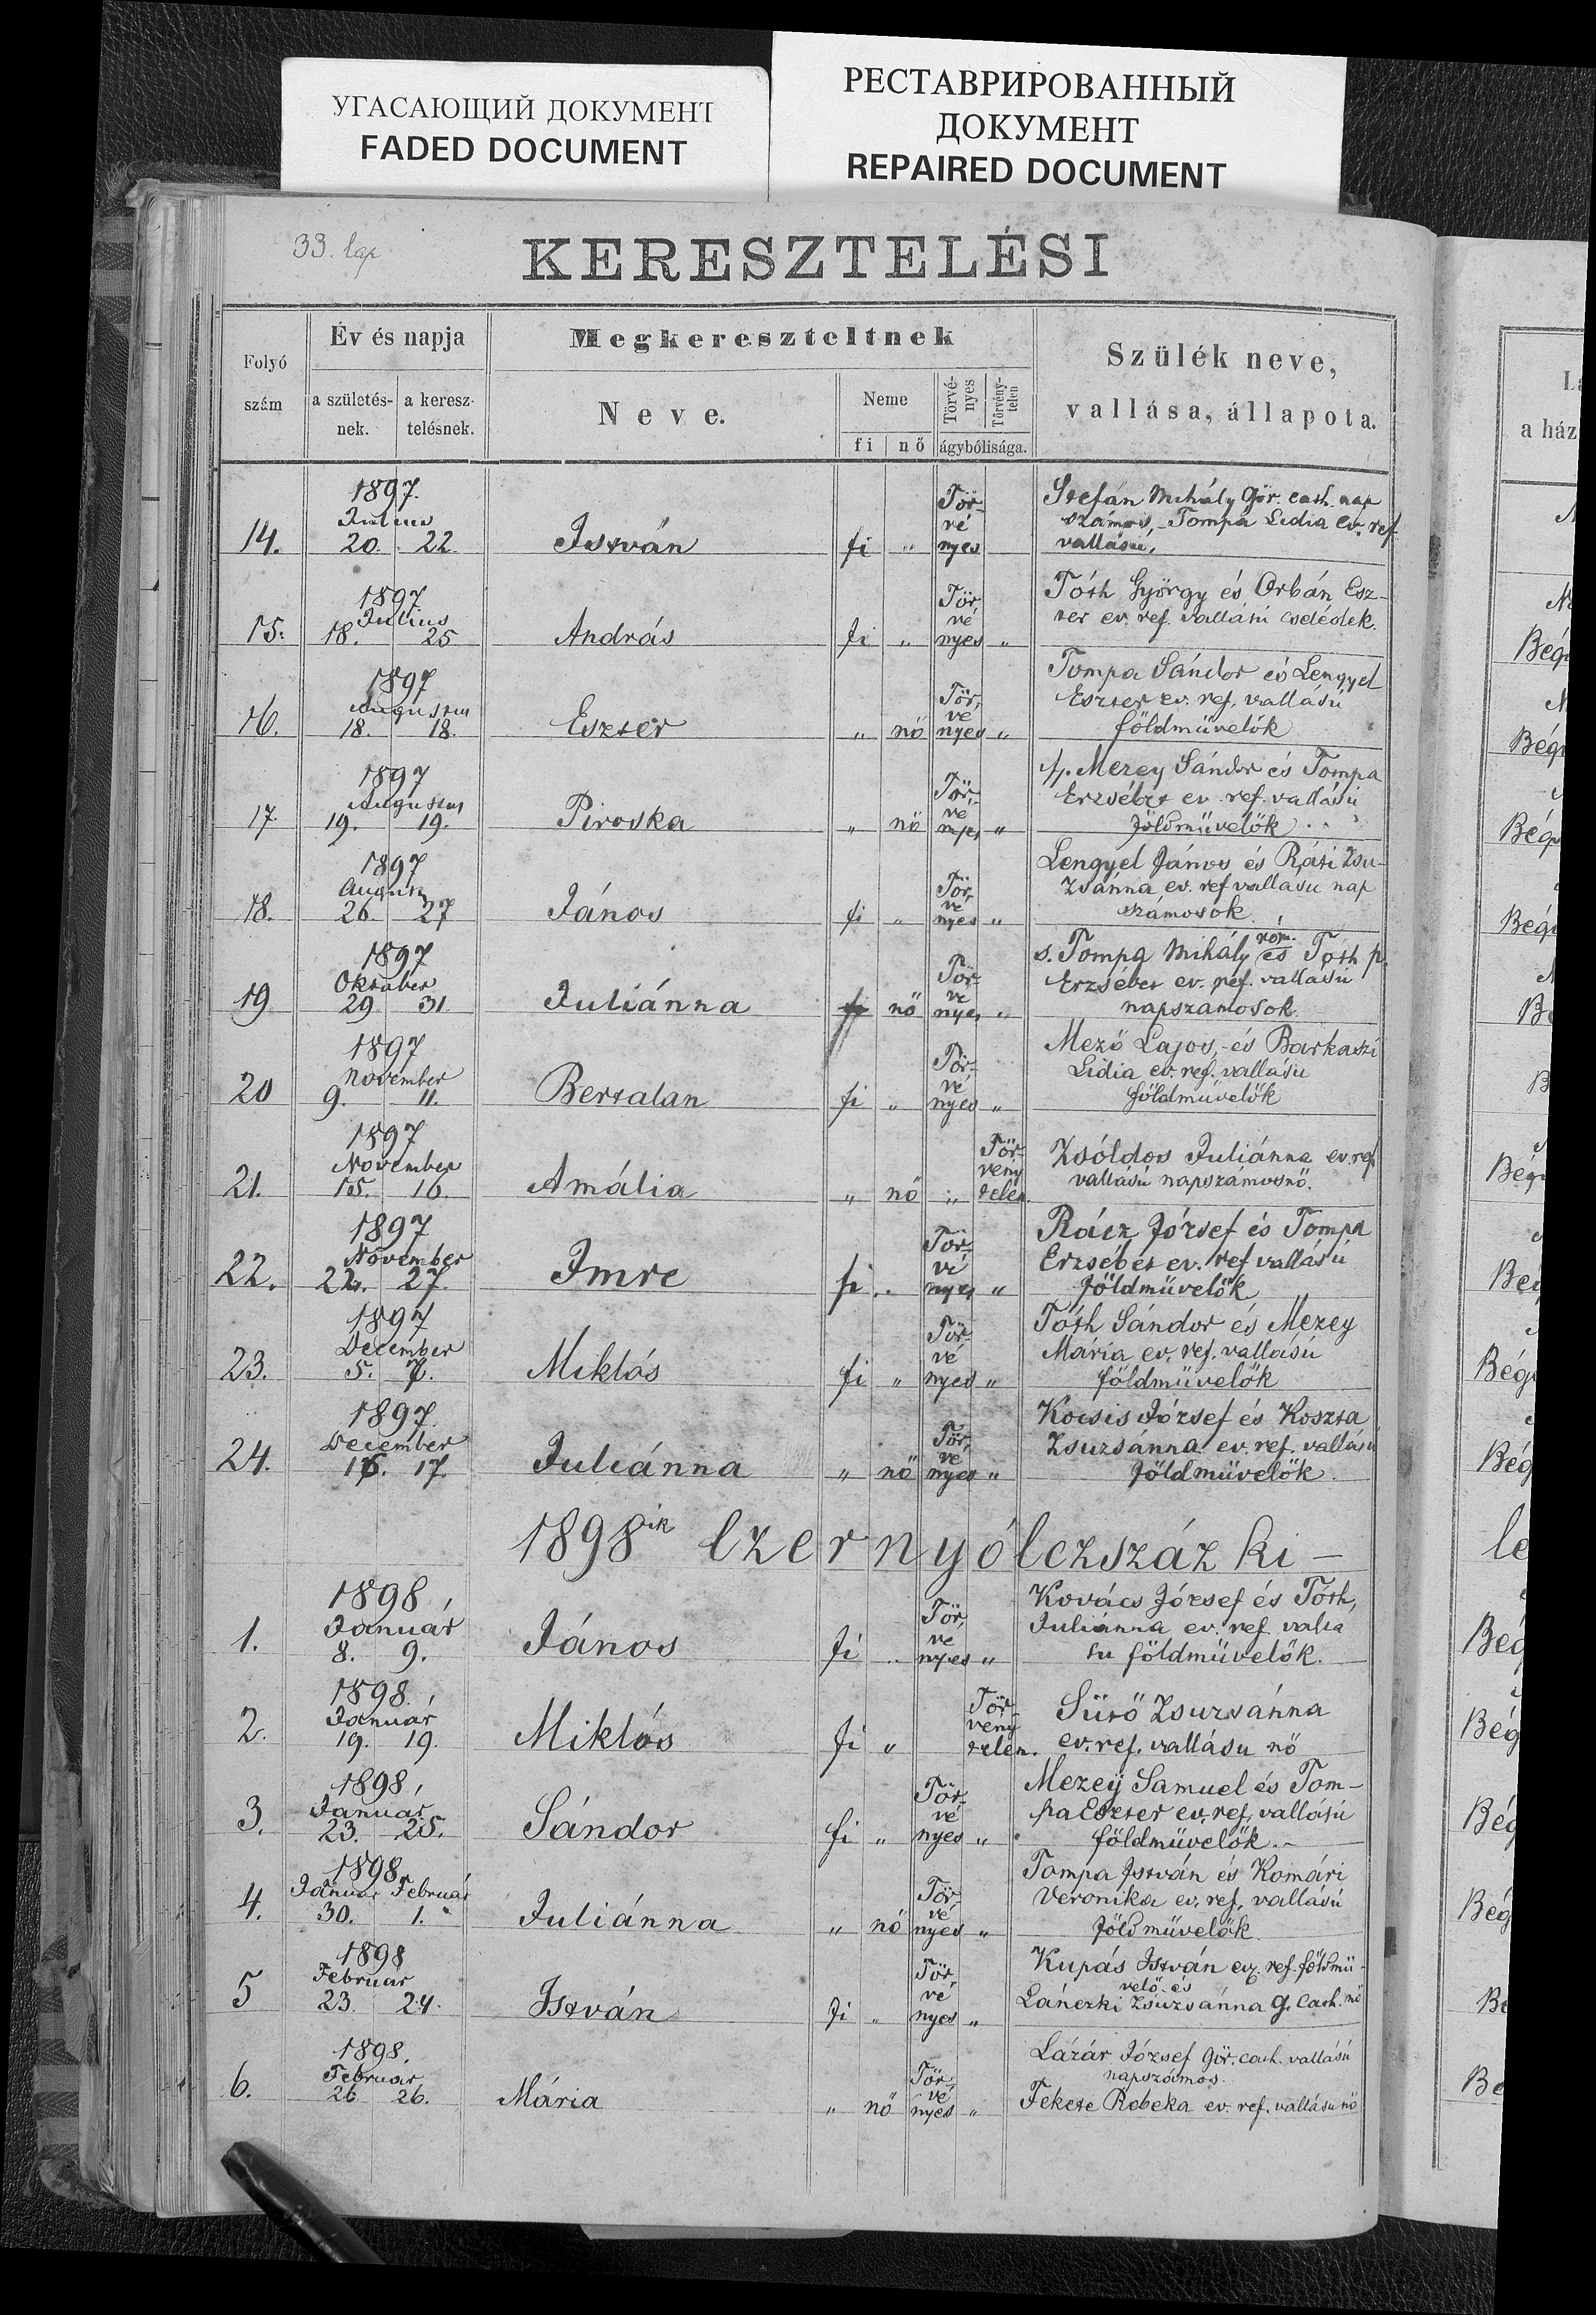 УГАСАЮЩИЙ ДОКУМЕНТ
FADED DOCUMENT
РЕСТАВРИРОВАННЫЙ
ДОКУМЕНТ
REPAIRED DOCUMENT
33. lap
KERESZTELÉSI
Folyó szám
Év és napja
a születés-nek.
a keresz-telésnek.
Megkereszteltnek
Neve.
Neme
fi nő
Törvé-nyes
Törvény-telen
ágybólisága.
Szülék neve,
vallása, állapota.
1897.
Julius
14. 20. 22. István fi „ Tör-vé nyes
Stefán Mihály Gör. cath. nap
számos, Tompa Lidia ev. ref.
vallású,
1897
Julius
15. 18. 25 András fi „ Tör,vé nyes „
Tóth György és Orbán Esz-
ter ev. ref. vallású cselédek.
1897
Augustus
16. 18. 18. Eszter „ nő Tör,ve nyes „
Tompa Sándor és Lengyel
Eszter ev. ref. vallású
földmüvelők
1897
Augustus
17. 19. 19. Piroska „ nő Tör,ve nyes „
Mezey Sándor és Tompa
Erzsébet ev. ref. vallású
földmüvelők
1897
18. 26 27 János fi „ Tör,vé nyes „
Lengyel János és Rási Zsu-
zsánna ev. ref vallasu nap
számosok
1897
Oktober
19 29 31. Juliánna fi nő Tör-ve nyes „
s. Tompa Mihály róm. és Tóth p.
Erzsébet ev. ref. vallású
napszamosok.
1897
November
20 9. 11. Bertalan fi „ Tör-vé nyes „
Mező Lajos, és Barkaszi
Lidia ev. ref. vallásu
földmüvelők
1897
November
21. 15. 16. Amália „ nő „ Tör-vény telen.
Zsóldos Juliánna ev. ref
vallású napszámosnő.
1897
November
22. 22. 27. Imre fi .. Tör-vé nyes „
Rácz József és Tompa
Erzsébet ev. ref vallású
földmüvelők
1897
December
23. 5. 7. Miklós fi „ Tör-vé nyes „
Tóth Sándor és Mezey
Mária ev. ref. vallású
földmüvelők
1897.
December
24. 16. 17. Juliánna „ nő Tör,ve nyes „
Kocsis József és Koszta
Zsuzsánna ev. ref. vallásu
földmüvelők.
1898ik Ezernyólczszáz ki-
1898,
Január
1. 8. 9. János fi .. Tör,ve nyes „
Kovács József és Tóth,
Juliánna ev. ref. valla
su földmüvelők.
1898.
Január
2. 19. 19. Miklós fi „ Tör-vény telen.
Sütő Zsuzsánna
ev. ref. vallásu nő
1898,
Januar
3. 23. 25. Sándor fi „ Tör-vé nyes „
Mezey Samuel és Tom-
pa Eszter ev. ref. vallású
földmüvelők.-
1898
Januar Február
4. 30. 1. Juliánna „ nő Tör-vé nyes „
Tompa István és Komári
Veronika ev. ref. vallású
földmüvelők
1898
Február
5 23. 24. István fi „ Tör,vé nyes „
Kupás István ev. ref. földmü-
velő és
Lánczki Zsuzsánna g. cath. nő
1898.
Február
6. 26 26. Mária „ nő Tör,vé nyes „
Lázár József gör. cath. vallású
napszámos.
Fekete Rebeka ev. ref. vallásu nő
a ház